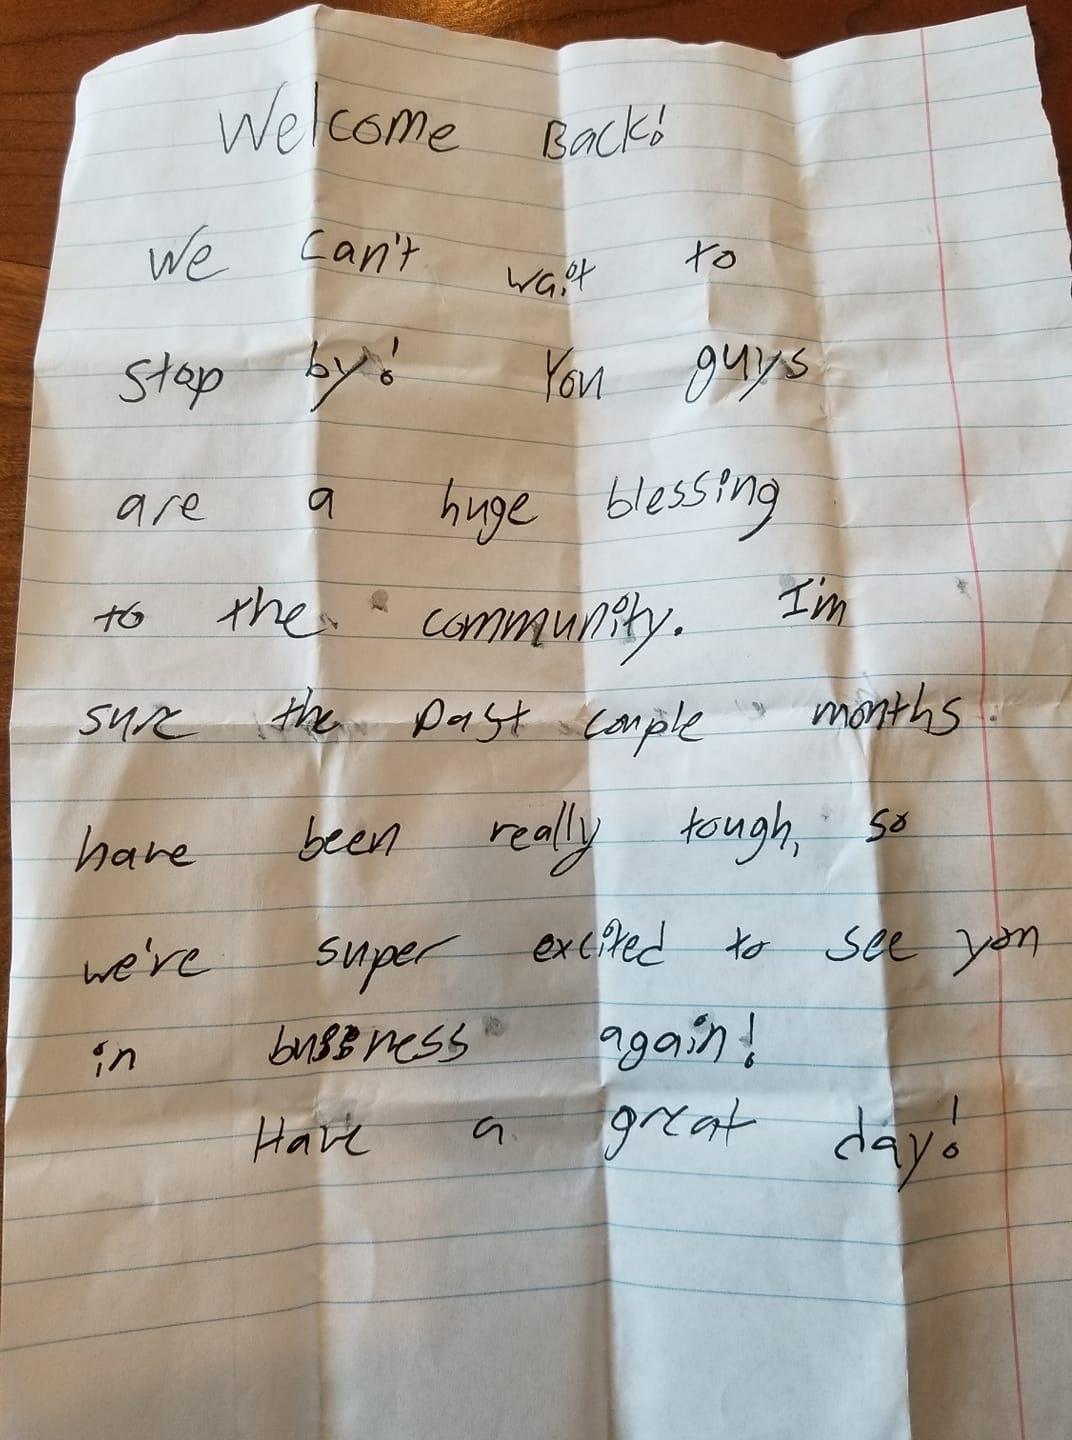 Welcome Back!
We can't wait to
stop by! You guys
are a huge blessing
to the community. I'm
sure the past couple months
have been really tough, so
we're super excited to see you
in bussness again!
Have a great day!